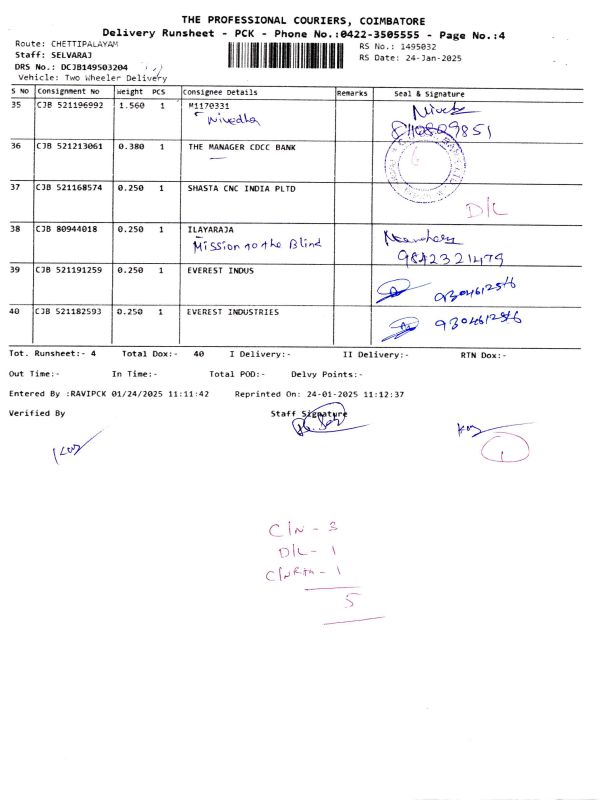 THE PROFESSIONAL COURIERS, COIMBATORE
Delivery Runsheet - PCK - Phone No.:0422-3505555 - Page No.:4
Route: CHETTIPALAYAM
Staff: SELVARAJ
DRS No.: DCJB149503204
Vehicle: Two Wheeler Delivery
RS No.: 1495032
RS Date: 24-Jan-2025
S No Consignment No Weight PCS Consignee Details Remarks Seal & Signature
35 CJB 521196992 1.560 1 M1170331
Nivedha
36 CJB 521213061 0.380 1 THE MANAGER CDCC BANK
37 CJB 521168574 0.250 1 SHASTA CNC INDIA PLTD D/L
38 CJB 80944018 0.250 1 ILAYARAJA
Mission to the Blind 9842321479
39 CJB 521191259 0.250 1 EVEREST INDUS 9304612546
40 CJB 521182593 0.250 1 EVEREST INDUSTRIES 9304612546
Tot. Runsheet:- 4 Total Dox:- 40 I Delivery:- II Delivery:- RTN Dox:-
Out Time:- In Time:- Total POD:- Delvy Points:-
Entered By :RAVIPCK 01/24/2025 11:11:42 Reprinted On: 24-01-2025 11:12:37
Verified By Staff Signature
1
C/N - 3
D/L - 1
- 1
5